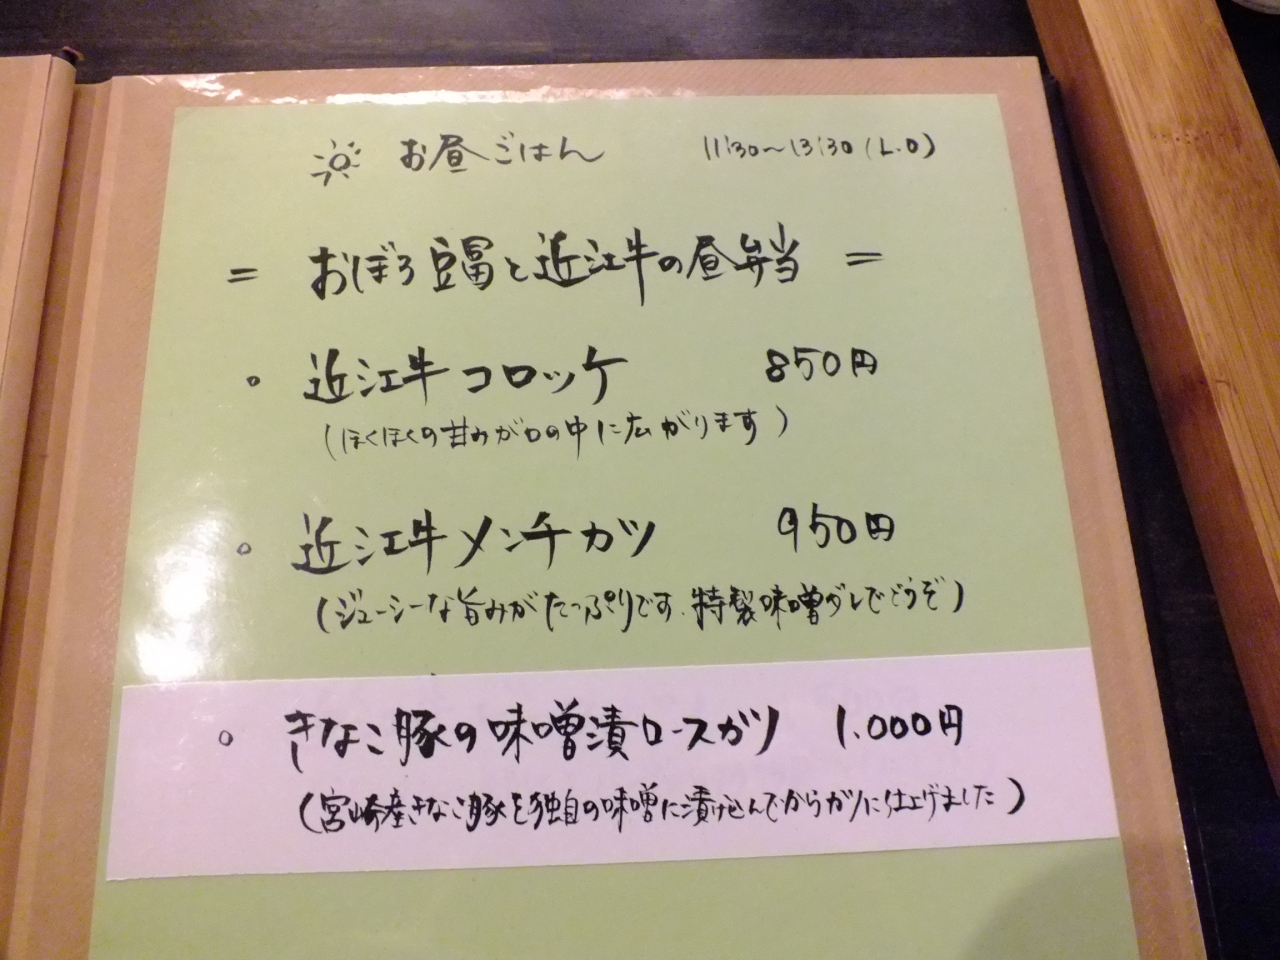 お昼ごはん 11:30〜13:30(L.O)
= おぼろ豆冨と近江牛の昼弁当 =
。近江牛コロッケ 850円
(ほくほくの甘みが口の中に広がります)
。近江牛メンチカツ 950円
(ジューシーな旨みがたっぷりです、特製味噌ダレでどうぞ)
。きなこ豚の味噌漬ロースカツ 1.000円
(宮崎産きなこ豚を独自の味噌に漬け込んでからカツに仕上げました)